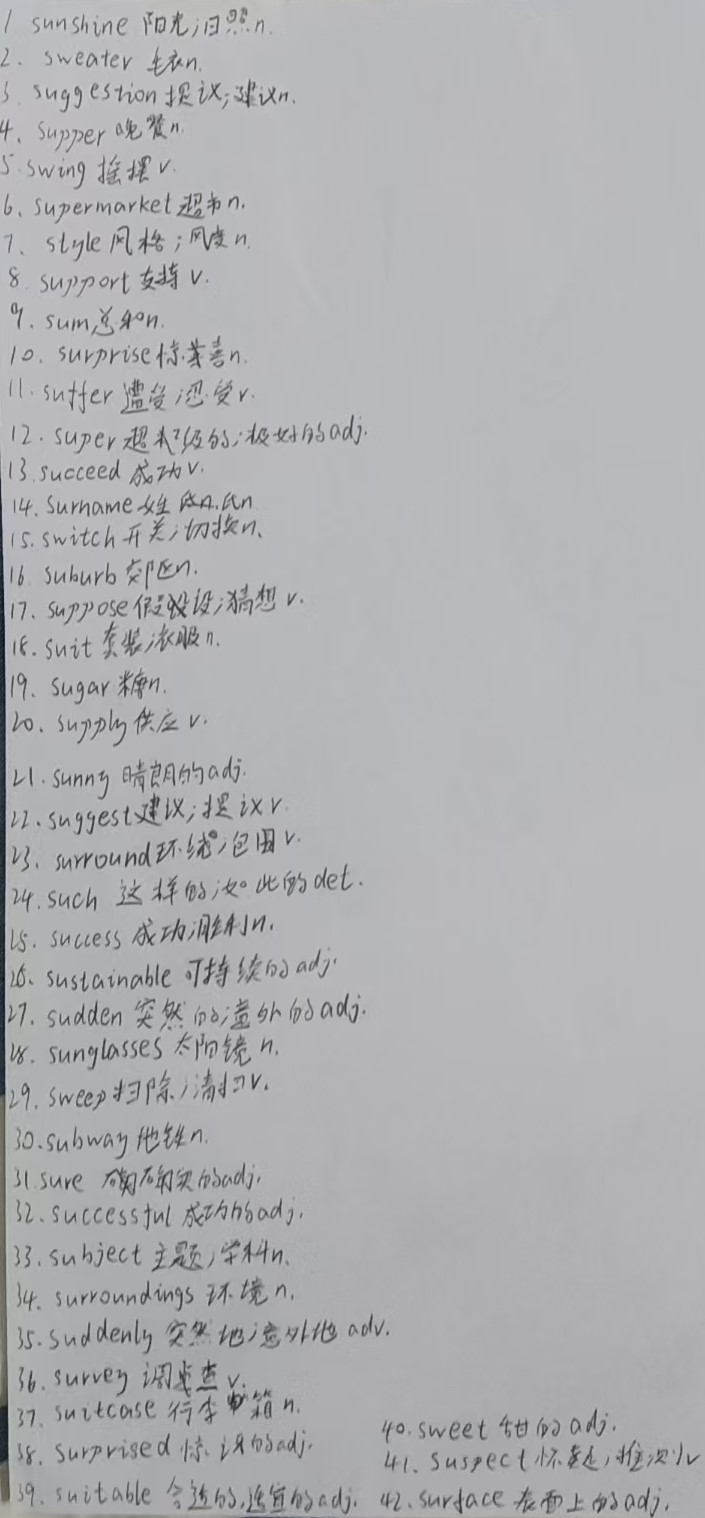 1 sunshine 阳光;日照n.
2. sweater 毛衣n.
3. suggestion 提议;建议n.
4. supper 晚餐n.
5. swing 摇摆v.
6. supermarket 超市n.
7. style 风格;风度n.
8. support 支持v.
9. sum总和n.
10. surprise惊喜n.
11. suffer 遭受;忍受v.
12. super 超级的;极好的adj.
13. succeed 成功v.
14. surname 姓氏n.
15. switch 开关;切换n.
16. suburb 郊区n.
17. suppose 假设;猜想v.
18. suit 套装;衣服n.
19. sugar 糖n.
20. supply 供应v.
21. sunny 晴朗的adj.
22. suggest建议;提议v
23. surround环绕;包围v.
24. such 这样的;如此的det.
25. success 成功;胜利n.
26. sustainable 可持续的adj.
27. sudden 突然的;意外的adj.
28. sunglasses 太阳镜n.
29. sweep扫除;清扫v.
30. subway地铁n.
31 sure 确实的adj.
32. successful 成功的adj.
33. subject 主题;学科n.
34. surroundings 环境n.
35. suddenly 突然地;意外地adv.
36. survey 调查v.
37. suitcase 行李箱n.
38. surprised 惊讶的adj.
39. suitable 合适的,适宜的adj.
40. sweet 甜的adj.
41. suspect怀疑;推测v
42. surface 表面上的adj.